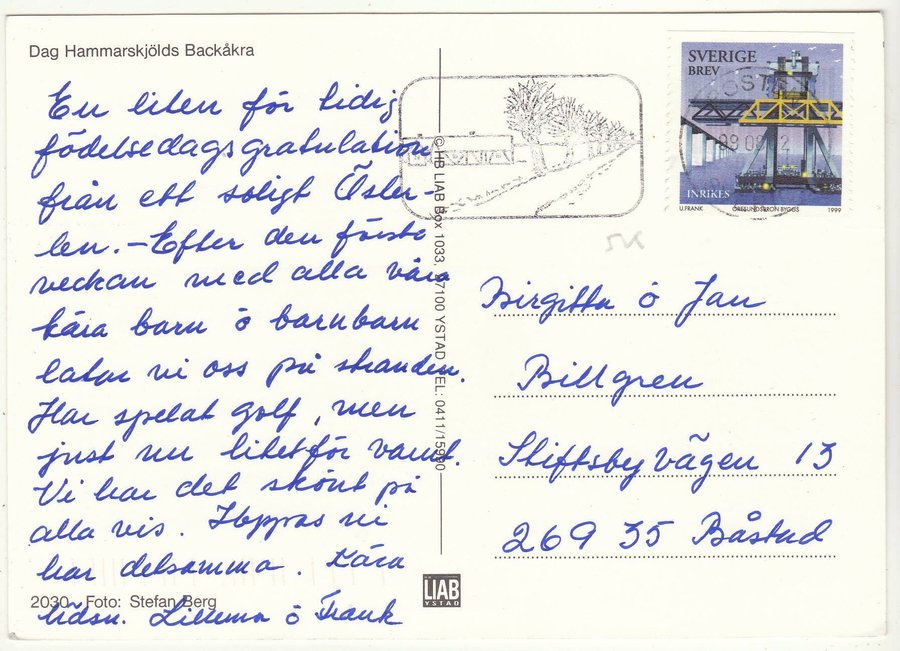 Dag Hammarskjölds Backåkra
En liten för tidig
födelsedagsgratulation
från ett soligt Öster-
len. - Efter den första
veckan med alla våra
kära barn ö barnbarn
latar vi oss på stranden.
Har spelat golf, men
just nu litet för varmt.
Vi har det skönt på
alla vis. Hoppas ni
har detsamma. Kära
2030 Foto: Stefan Berg
hälsn. Lillemo ö Frank
© HB LIAB Box 1033, 27100 YSTAD TEL: 0411/15990
LIAB
YSTAD
SVERIGE
BREV
INRIKES
U.FRANK ÖRESUNDSBRON BYGGS 1999
5K
Birgitta ö Jan
Billgren
Stiftsbyvägen 13
269 35 Båstad